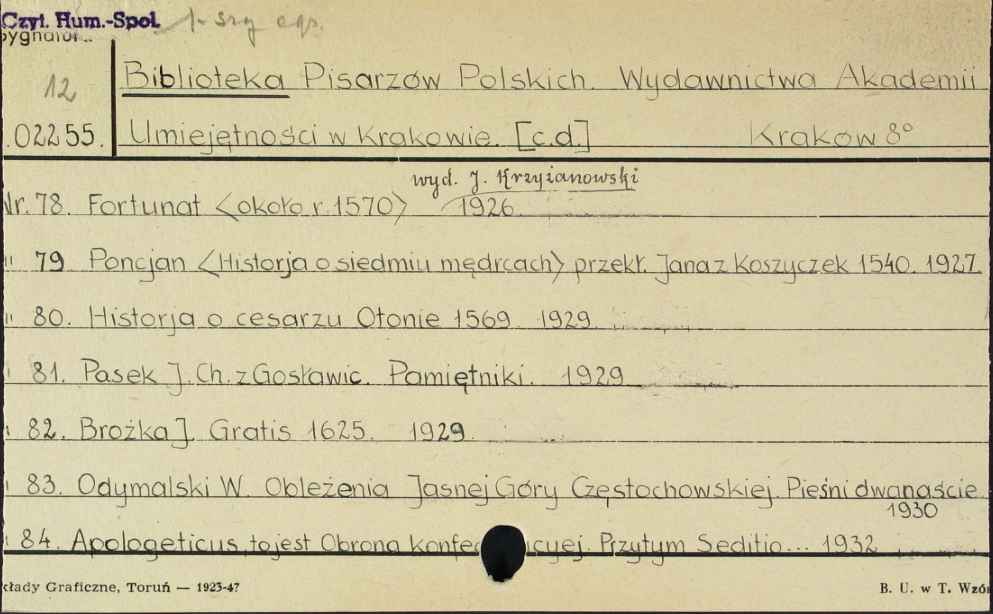 Czyt. Hum.-Społ. 1-szy egz.
Sygnatura
12
Biblioteka Pisarzów Polskich. Wydawnictwo Akademii
02255. Umiejętności w Krakowie. [c.d.] Kraków 8°
wyd. J. Krzyżanowski
Nr. 78. Fortunat <około r. 1570> 1926.
" 79 Poncjan <Historja o siedmiu mędrcach> przekł. Jana z Koszyczek 1540. 1927.
" 80. Historja o cesarzu Otonie 1569 1929.
" 81. Pasek J. Ch. z Gosławic. Pamiętniki. 1929
" 82. Brożka J. Gratis 1625. 1929.
" 83. Odymalski W. Oblężenia Jasnej Góry Częstochowskiej. Pieśni dwanaście.
1930
" 84. Apologeticus, to jest Obrona Konfe icyej. Przytym Seditio... 1932
kłady Graficzne, Toruń — 1923-47 B. U. w T. Wzór